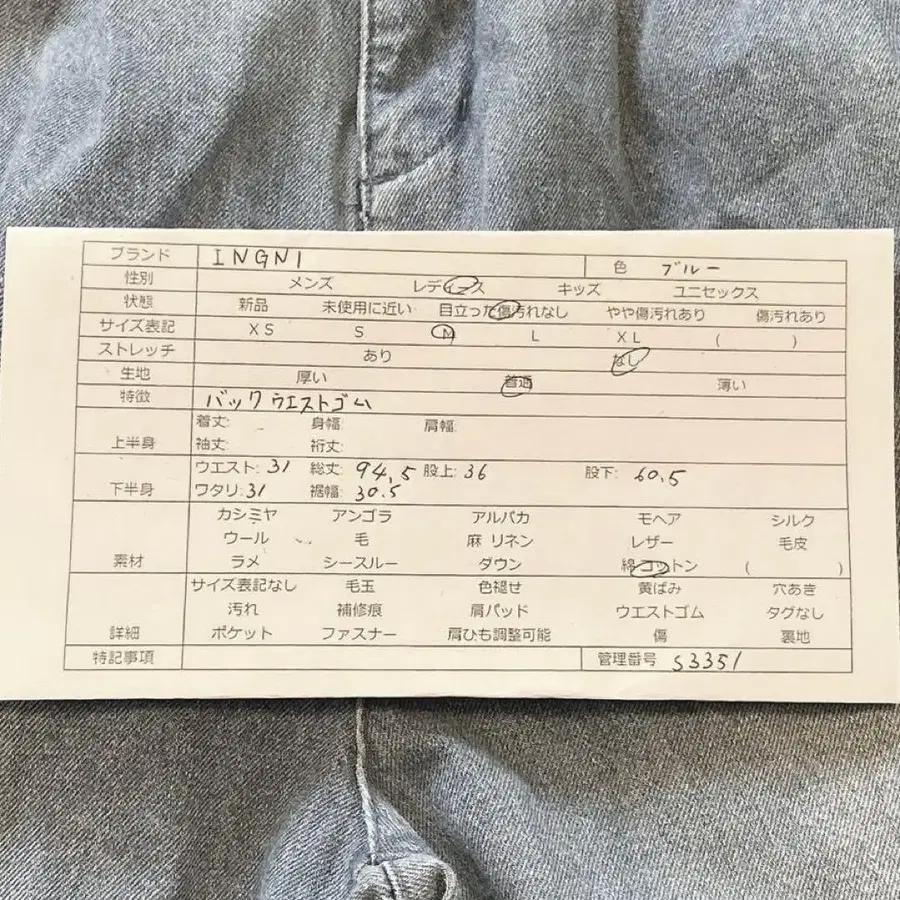 ブランド INGNI 色 ブルー
性別 メンズ レディース キッズ ユニセックス
状態 新品 未使用に近い 目立った傷汚れなし やや傷汚れあり 傷汚れあり
サイズ表記 XS S M L XL ( )
ストレッチ あり なし
生地 厚い 普通 薄い
特徴 バックウエストゴム
着丈: 身幅: 肩幅:
上半身 袖丈: 裄丈:
ウエスト: 31 総丈: 94.5 股上: 36 股下: 60.5
下半身 ワタリ: 31 裾幅: 30.5
カシミヤ アンゴラ アルパカ モヘア シルク
ウール 毛 麻 リネン レザー 毛皮
素材 ラメ シースルー ダウン 綿 コットン ( )
サイズ表記なし 毛玉 色褪せ 黄ばみ 穴あき
汚れ 補修痕 肩パッド ウエストゴム タグなし
詳細 ポケット ファスナー 肩ひも調整可能 傷 裏地
特記事項 管理番号 S3351